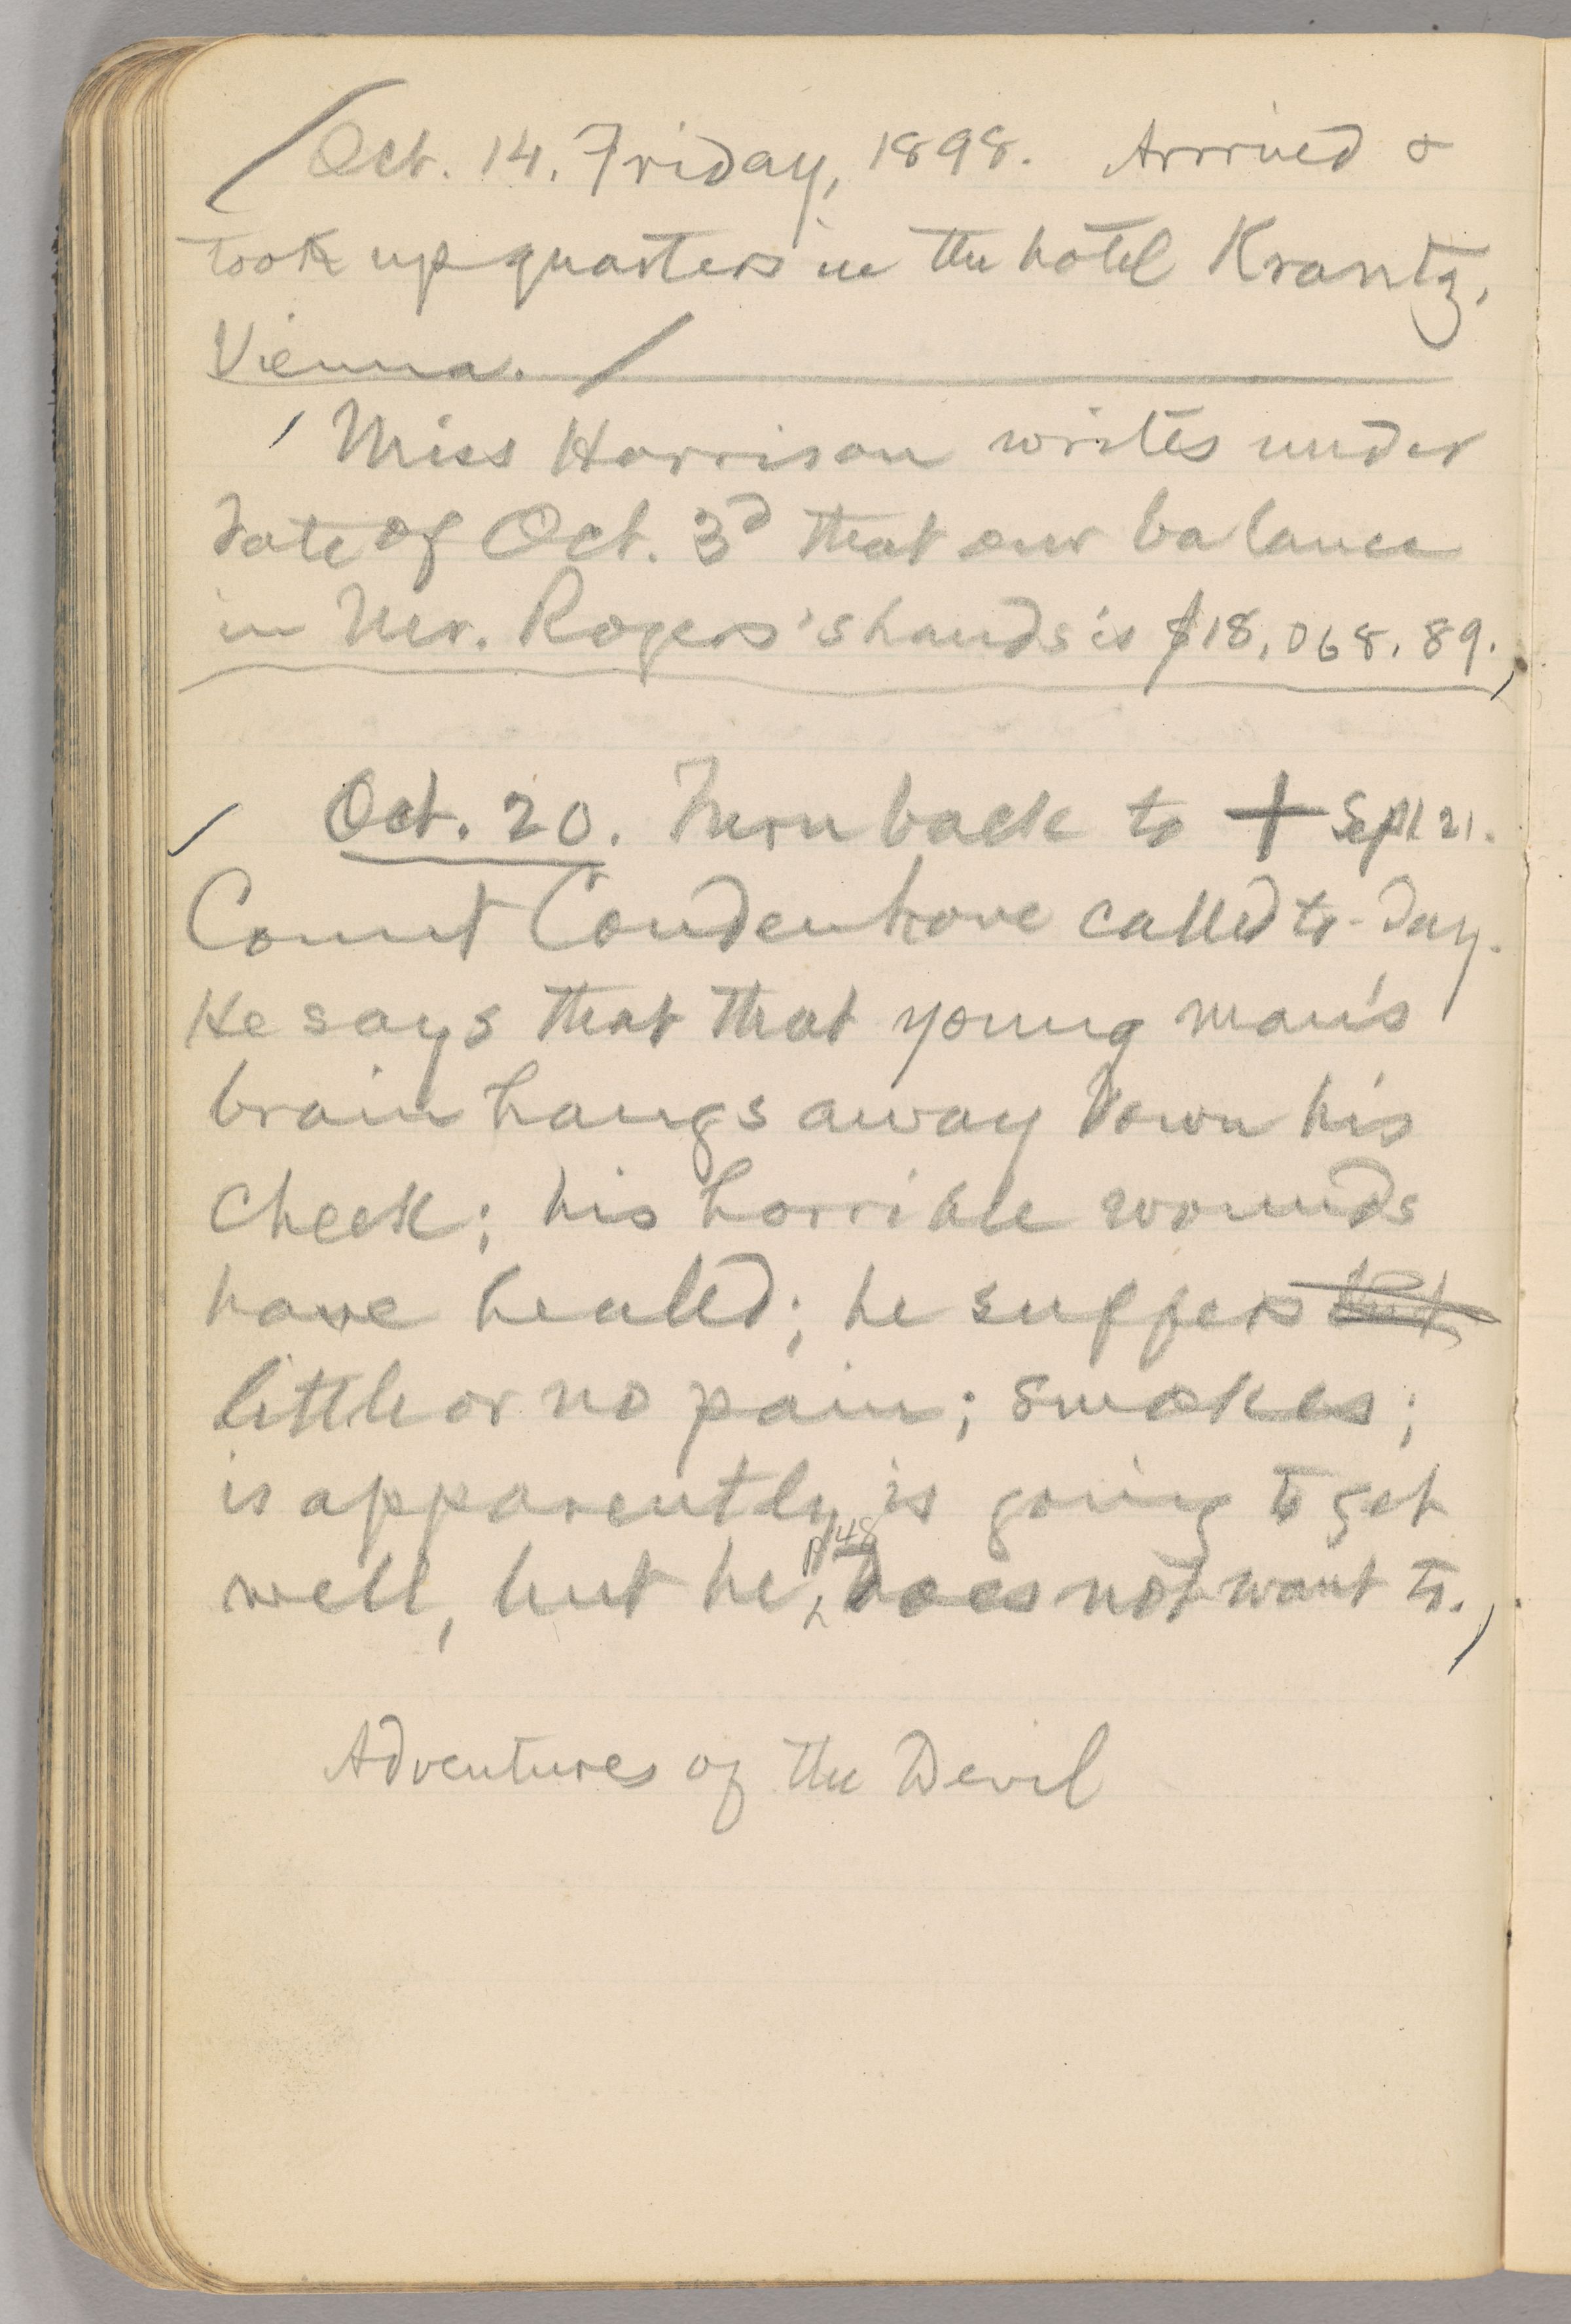 Oct. 14. Friday, 1898. Arrived &
took up quarters in the hotel Krantz,
Vienna.
Miss Harrison writes under
date of Oct. 3d that our balance
in Mr. Rogers's hands is $18,068.89.
Oct. 20. Turn back to + Sept 21.
Count Coudenhove called to-day.
He says that that young man's
brain hangs away down his
cheek; his horrible wounds
have healed; he suffers but
little or no pain; smokes;
is apparently is going to get
p 48
well, but he does not want to.
Adventures of the Devil